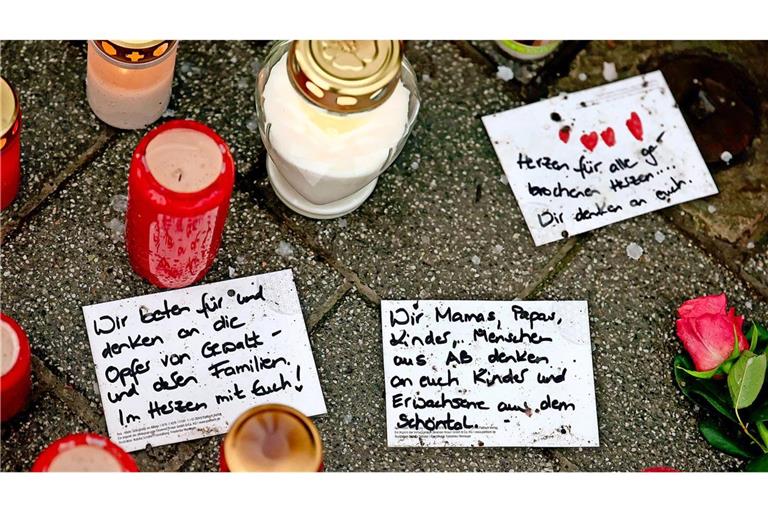 Herzen für alle ge-
brochenen Herzen....
Wir denken an euch
Wir beten für und
denken an die
Opfer von Gewalt
und deren Familien.
Im Herzen mit Euch!
Wir Mamas, Papas,
Kinder, Menschen
aus AB denken
an euch Kinder und
Erwachsene aus dem
Schöntal.